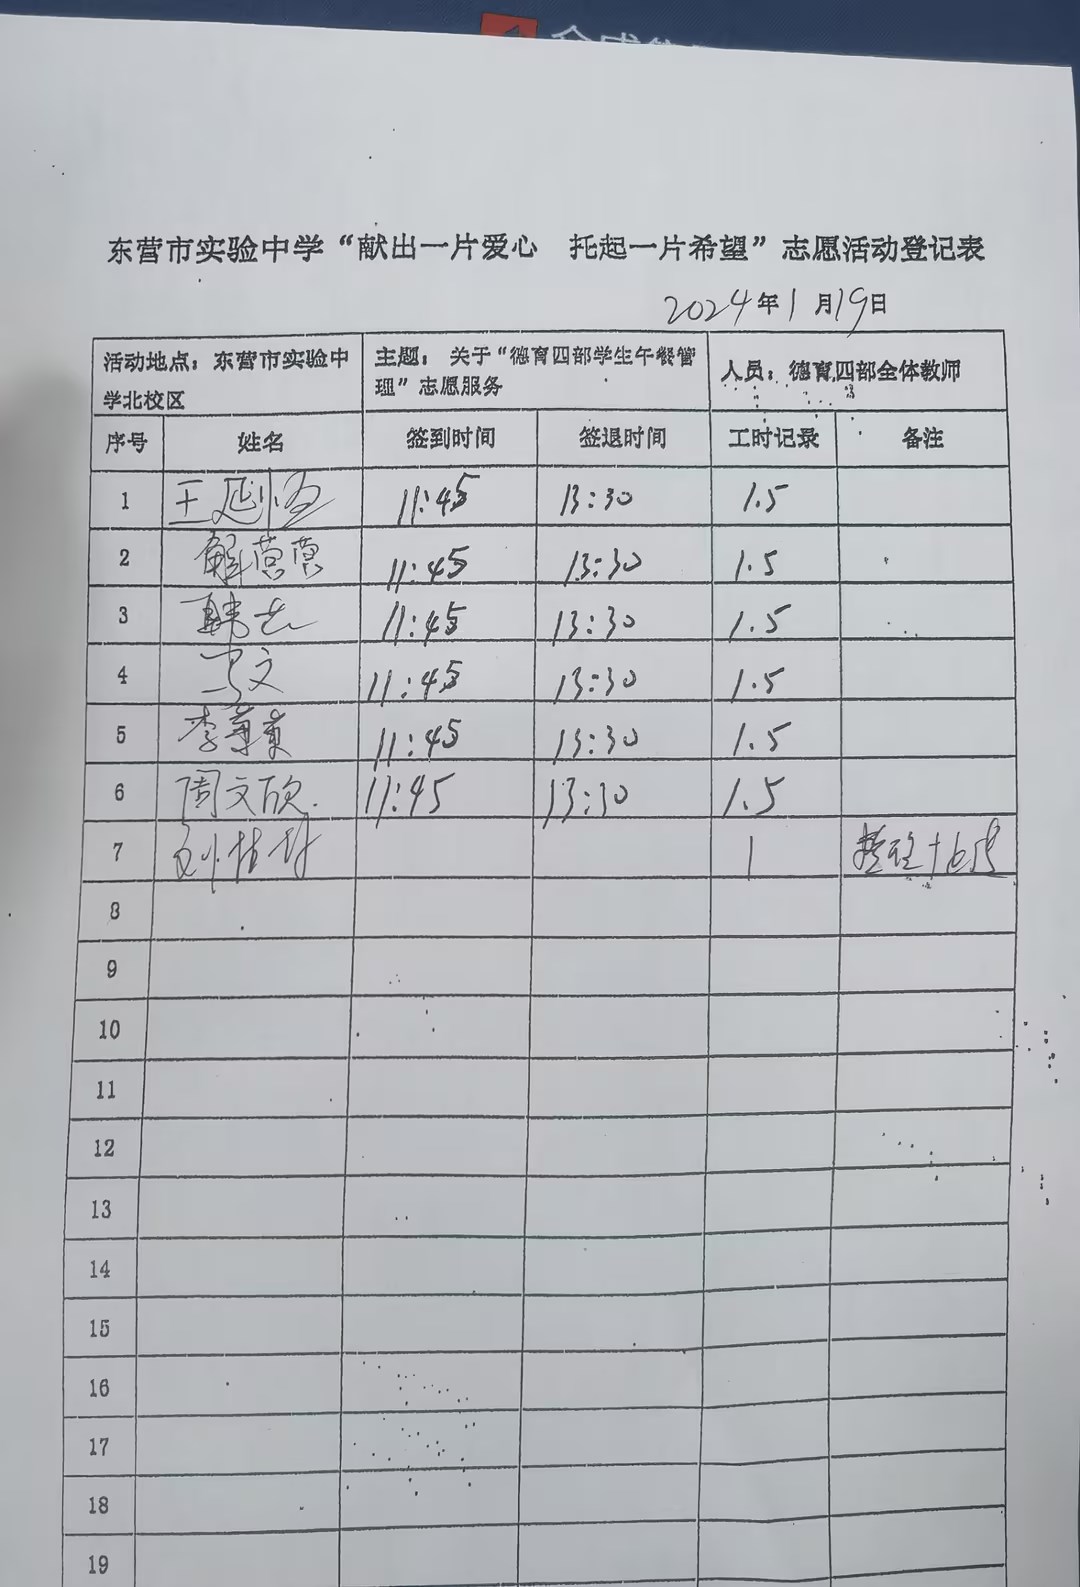 东营市实验中学“献出一片爱心 托起一片希望”志愿活动登记表
2024年1月19日
活动地点：东营市实验中学北校区 主题：关于“德育四部学生午餐管理”志愿服务 人员：德育四部全体教师
序号 姓名 签到时间 签退时间 工时记录 备注
1 王延 11:45 13:30 1.5
2 解营营 11:45 13:30 1.5
3 韩 11:45 13:30 1.5
4 马文 11:45 13:30 1.5
5 李 11:45 13:30 1.5
6 周文欣 11:45 13:30 1.5
7 刘桂 1 整理
8
9
10
11
12
13
14
15
16
17
18
19